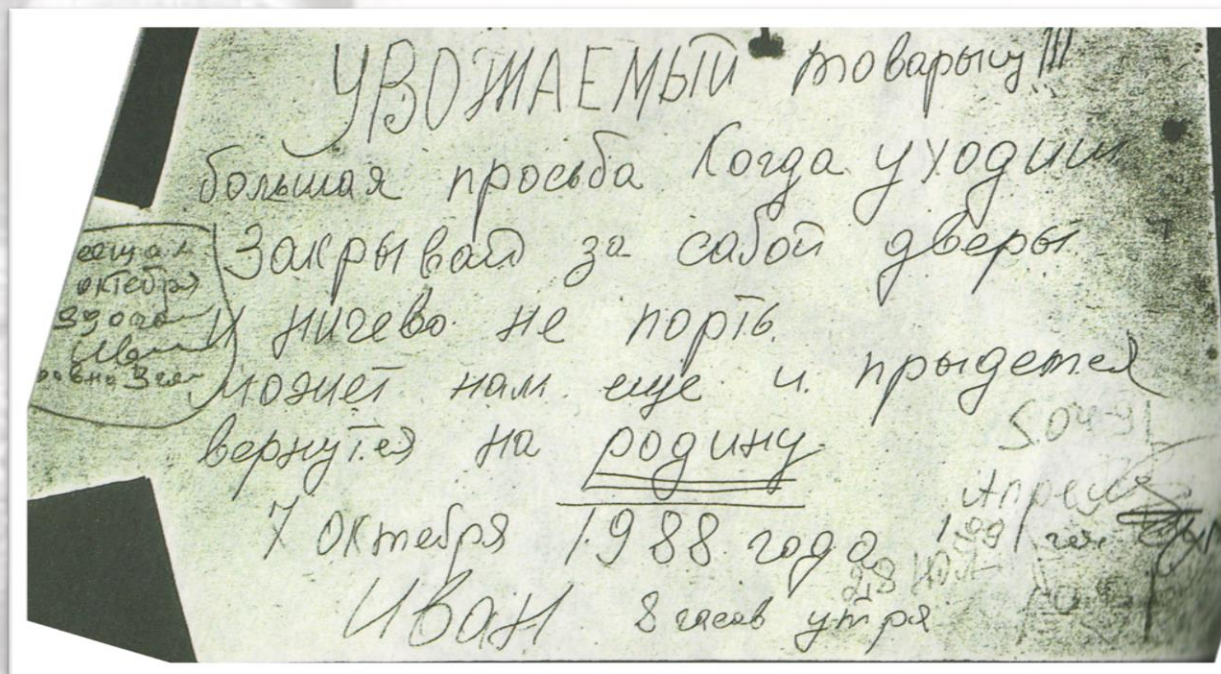 УВОЖАЕМЫЙ товарыщ!!!
большая просьба Когда уходиш
Закрывай за сабой дверы
и ничево не порть
может нам еще и прыдется
вернутся на родину
7 октября 1988 года
Иван 8 часов утря
октября
Иван
5.04-91
Апреля
1991